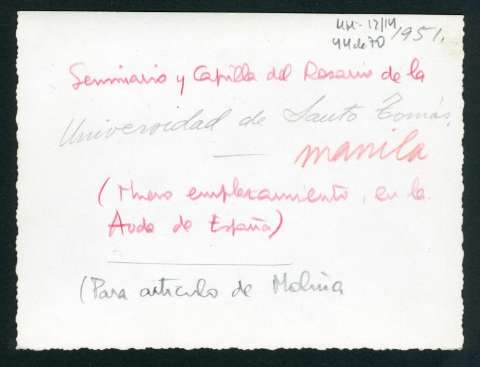 MH-12/14
44 de 70
1951.
Seminario y Capilla del Rosario de la
Universidad de Santo Tomás.
manila
(Nuevo emplazamiento, en la
Avda de España)
(Para artículo de Molina